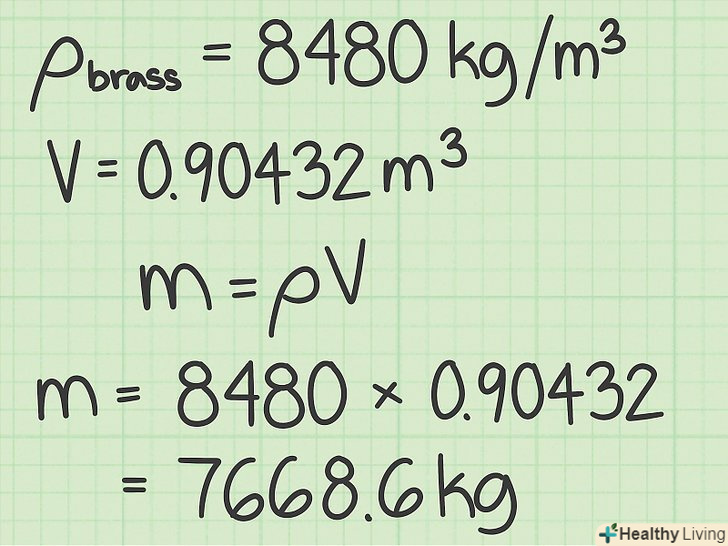 ρbrass = 8480 kg/m³
V = 0.90432 m³
m = ρV
m = 8480 × 0.90432
= 7668.6 kg
Healthy Living